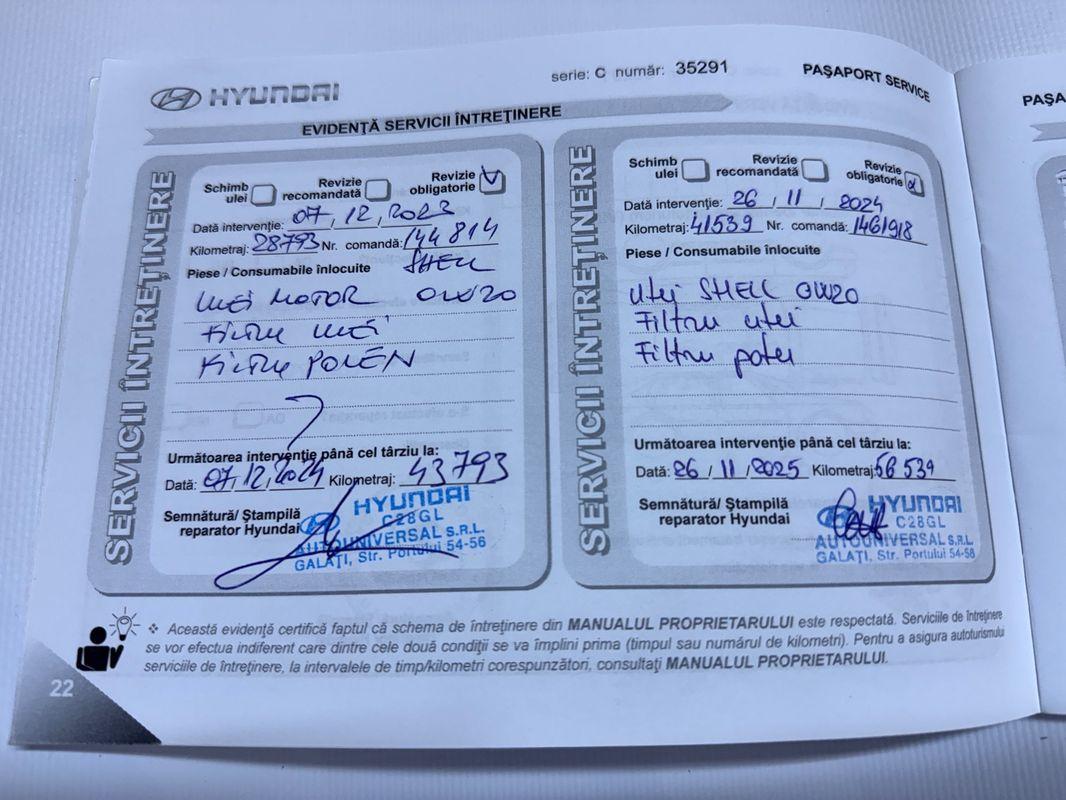 HYUNDAI
serie: C număr: 35291
PAŞAPORT SERVICE
EVIDENŢĂ SERVICII ÎNTREŢINERE
SERVICII ÎNTREŢINERE
Schimb ulei
Revizie recomandată
Revizie obligatorie
Data intervenţie: 07, 12, 2023
Kilometraj: 28793 Nr. comandă: 144814
Piese / Consumabile înlocuite SHELL
ULEI MOTOR 0W20
FILTRU ULEI
FILTRU POLEN
Următoarea intervenţie până cel târziu la:
Dată: 07, 12, 2024 Kilometraj: 43793
Semnătură/ Ştampilă
reparator Hyundai
HYUNDAI
C28GL
AUTOUNIVERSAL S.R.L.
GALAŢI, Str. Portului 54-56
SERVICII ÎNTREŢINERE
Schimb ulei
Revizie recomandată
Revizie obligatorie
Dată intervenţie: 26 / 11 / 2024
Kilometraj: 41539 Nr. comandă: 1461918
Piese / Consumabile înlocuite
Ulei SHELL 0W20
Filtru ulei
Filtru polen
Următoarea intervenţie până cel târziu la:
Dată: 26 / 11 / 2025 Kilometraj: 56539
Semnătură/ Ştampilă
reparator Hyundai
HYUNDAI
C28GL
AUTOUNIVERSAL S.R.L.
GALAŢI, Str. Portului 54-56
❖ Această evidenţă certifică faptul că schema de întreţinere din MANUALUL PROPRIETARULUI este respectată. Serviciile de întreţinere
se vor efectua indiferent care dintre cele două condiţii se va împlini prima (timpul sau numărul de kilometri). Pentru a asigura autoturismului
serviciile de întreţinere, la intervalele de timp/kilometri corespunzători, consultaţi MANUALUL PROPRIETARULUI.
22
PAŞA